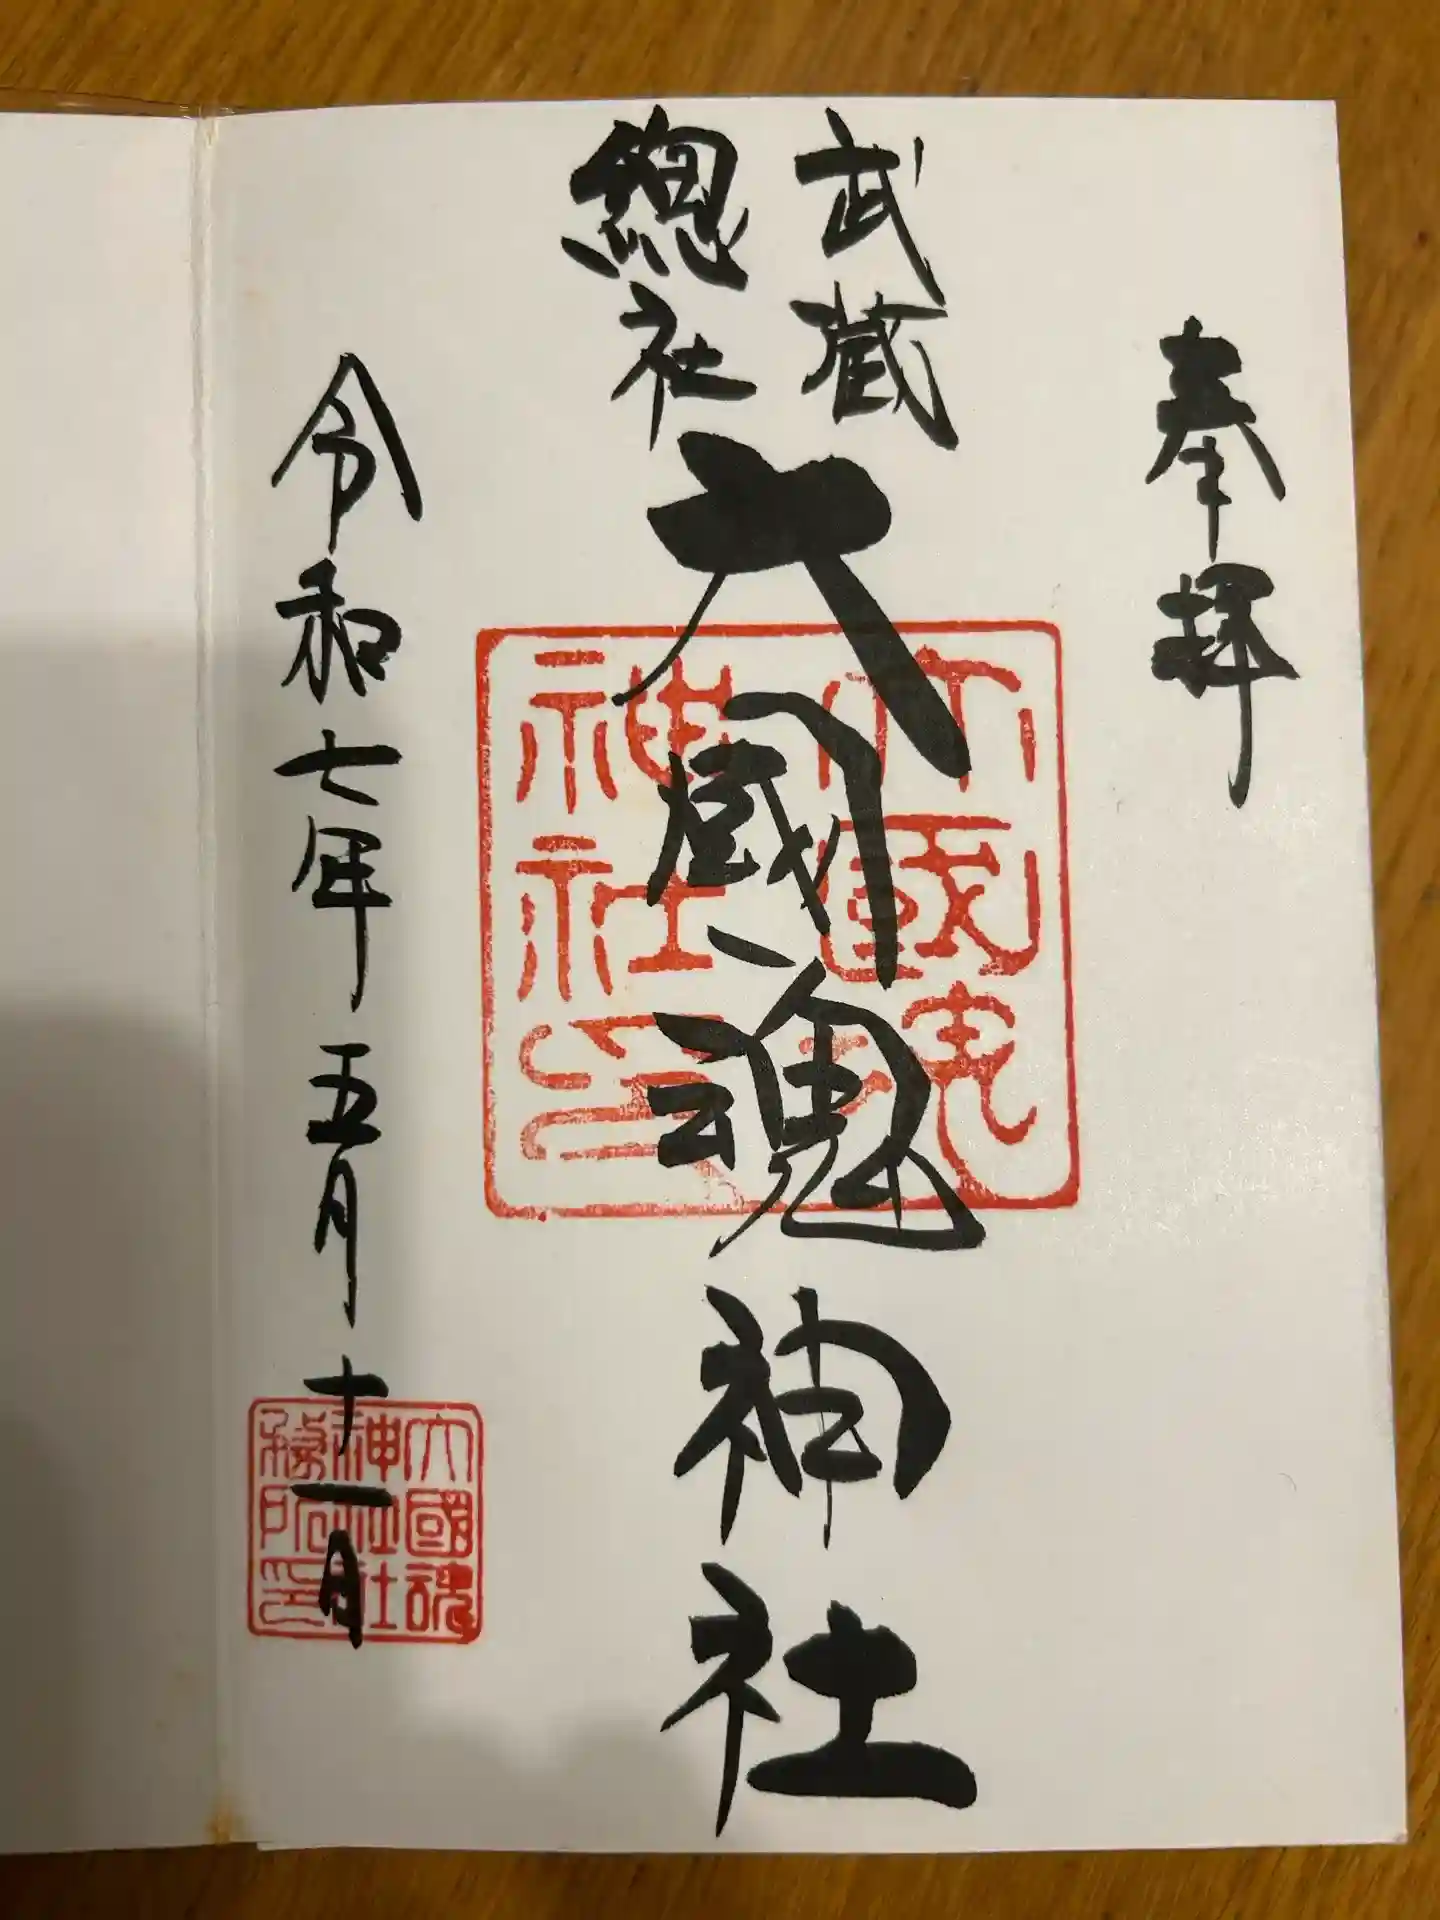 奉拝
武蔵
總社
大國魂神社
令和七年五月十一日
大國魂
神社印
大國魂
神社
務所印